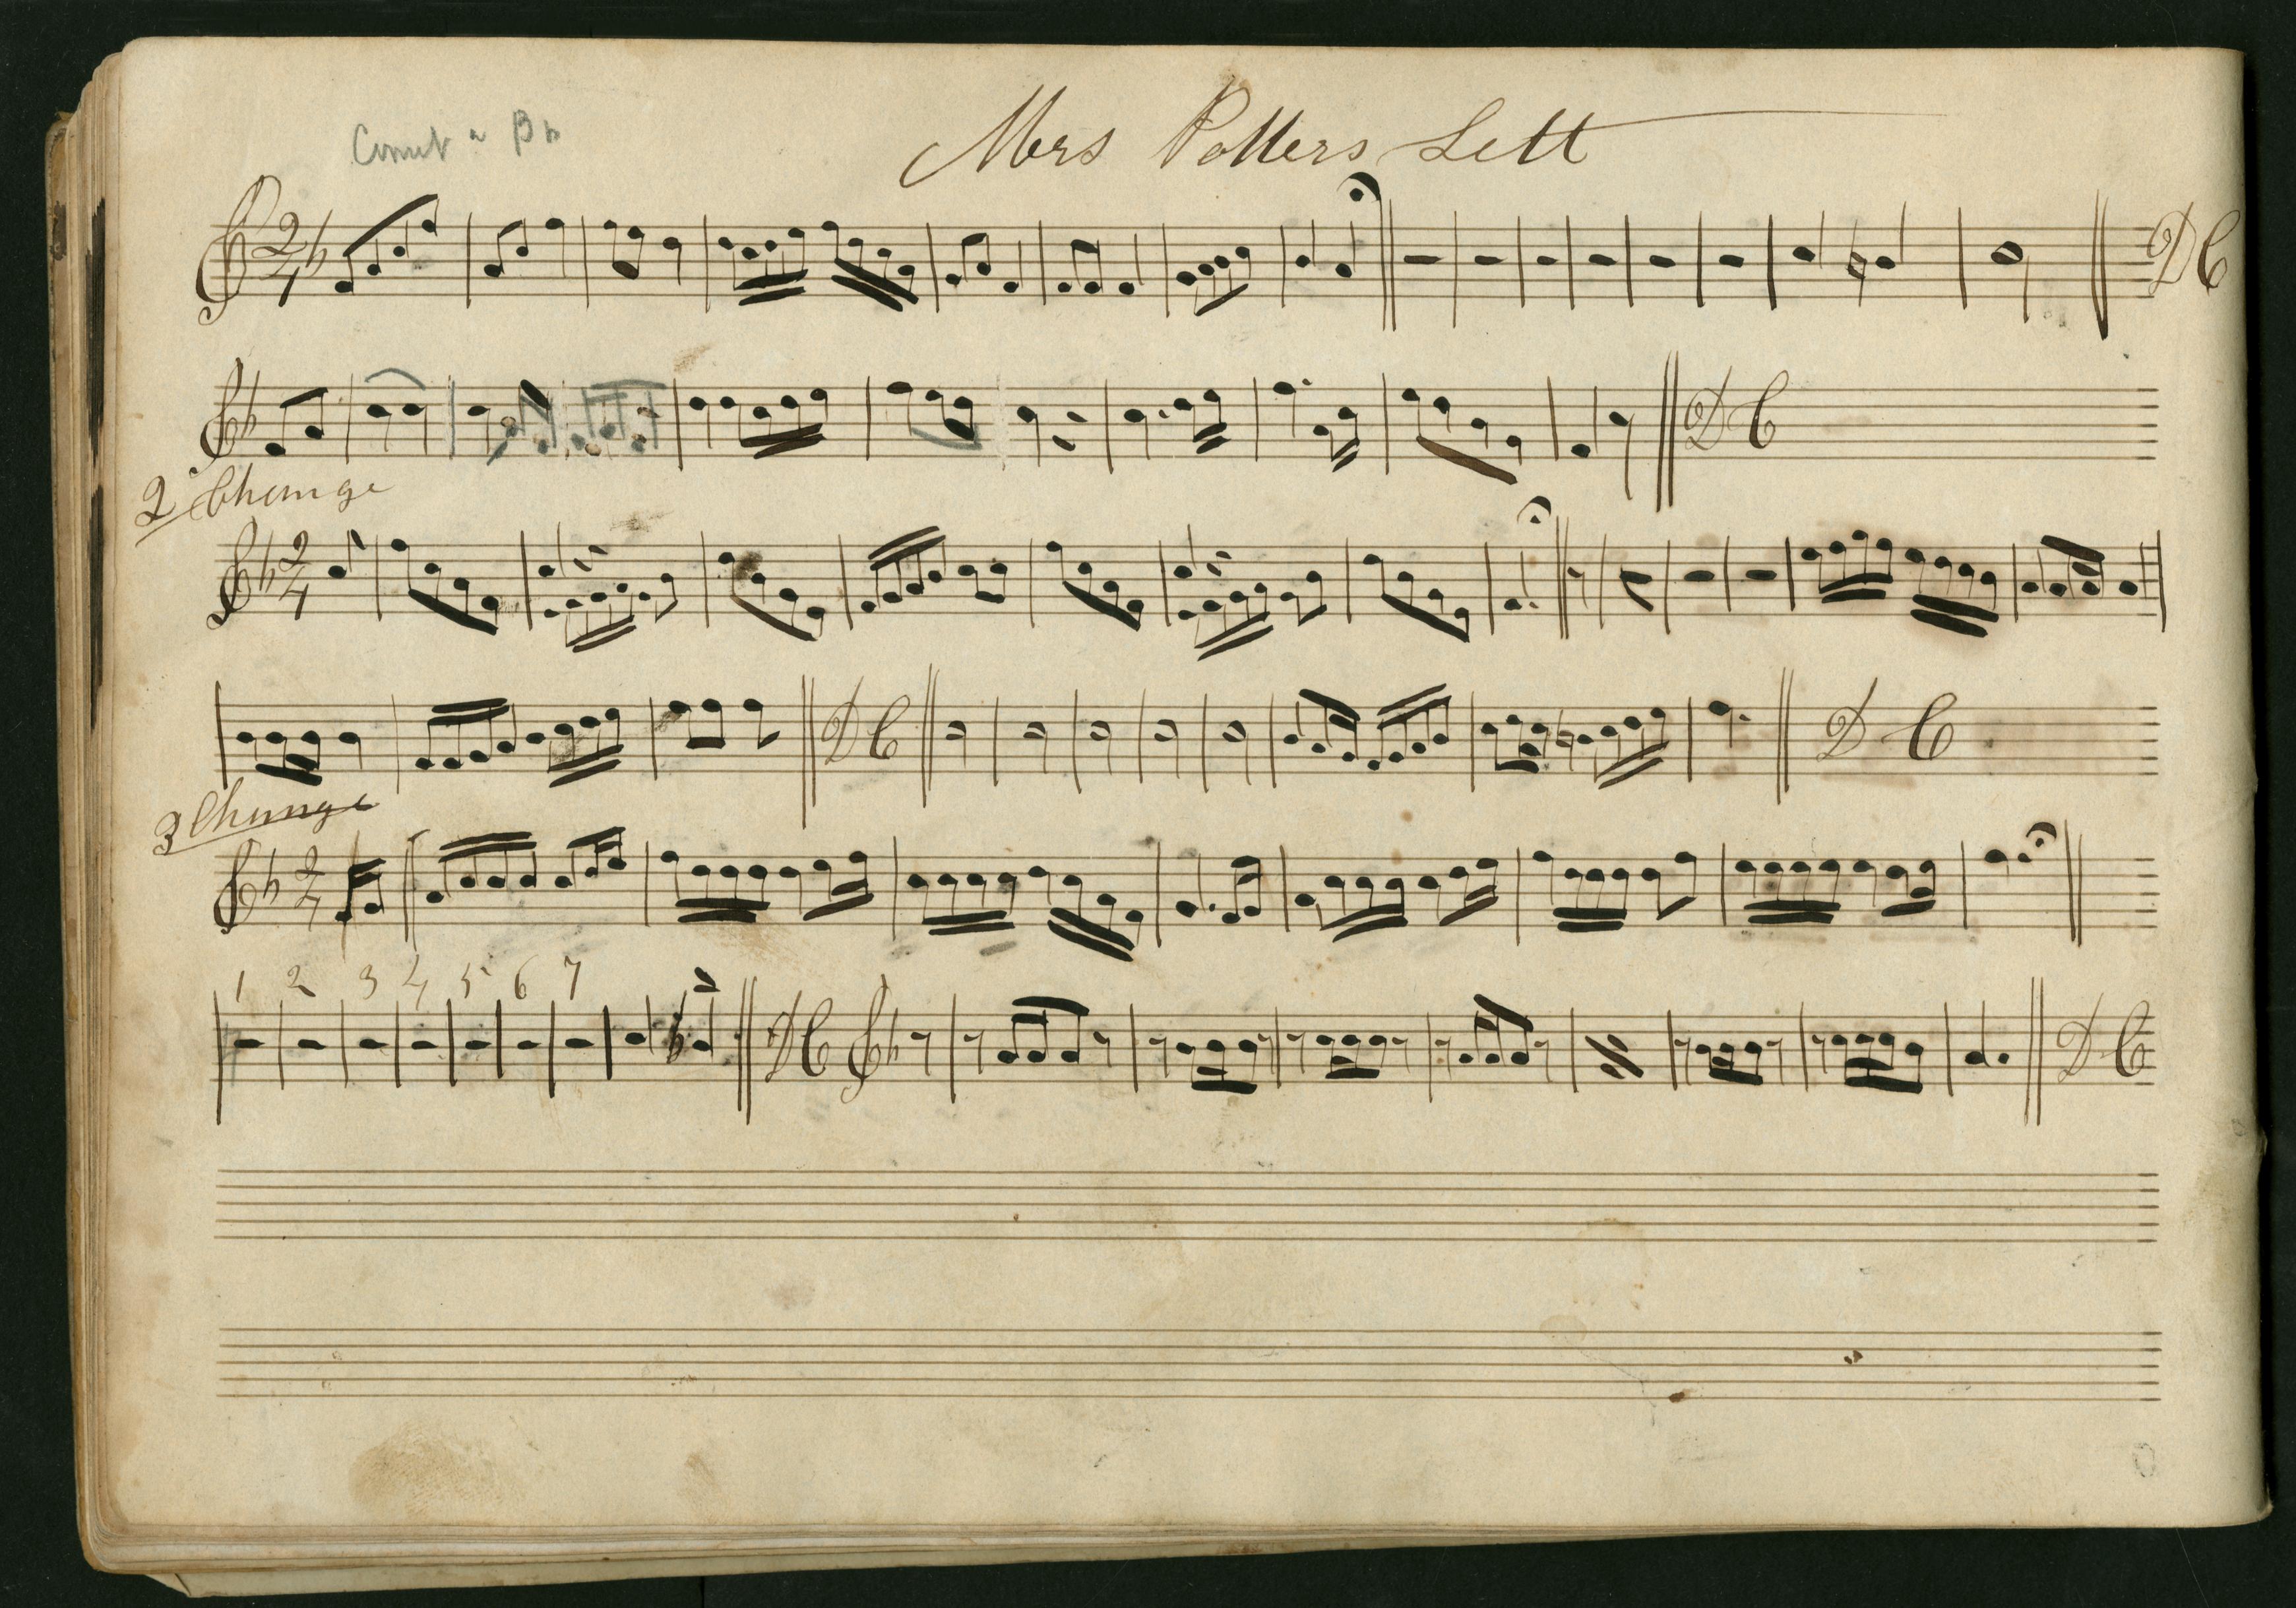 Cornet in Bb
Mrs Potters Sett
2/4 DC
DC
2 Change
2/4
DC DC
3 Change
2/4
1 2 3 4 5 6 7
DC DC